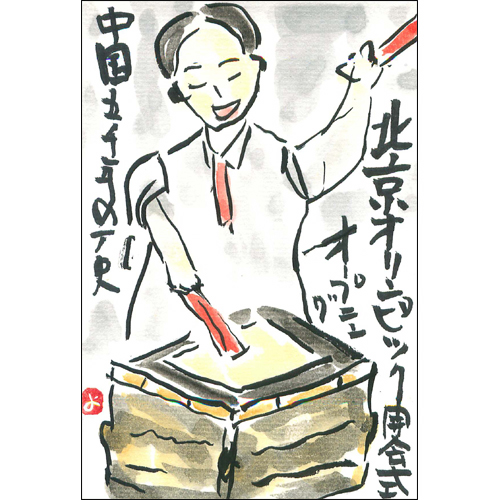 北京オリンピック開合式
オープニング
中国五千年の歴史
よ